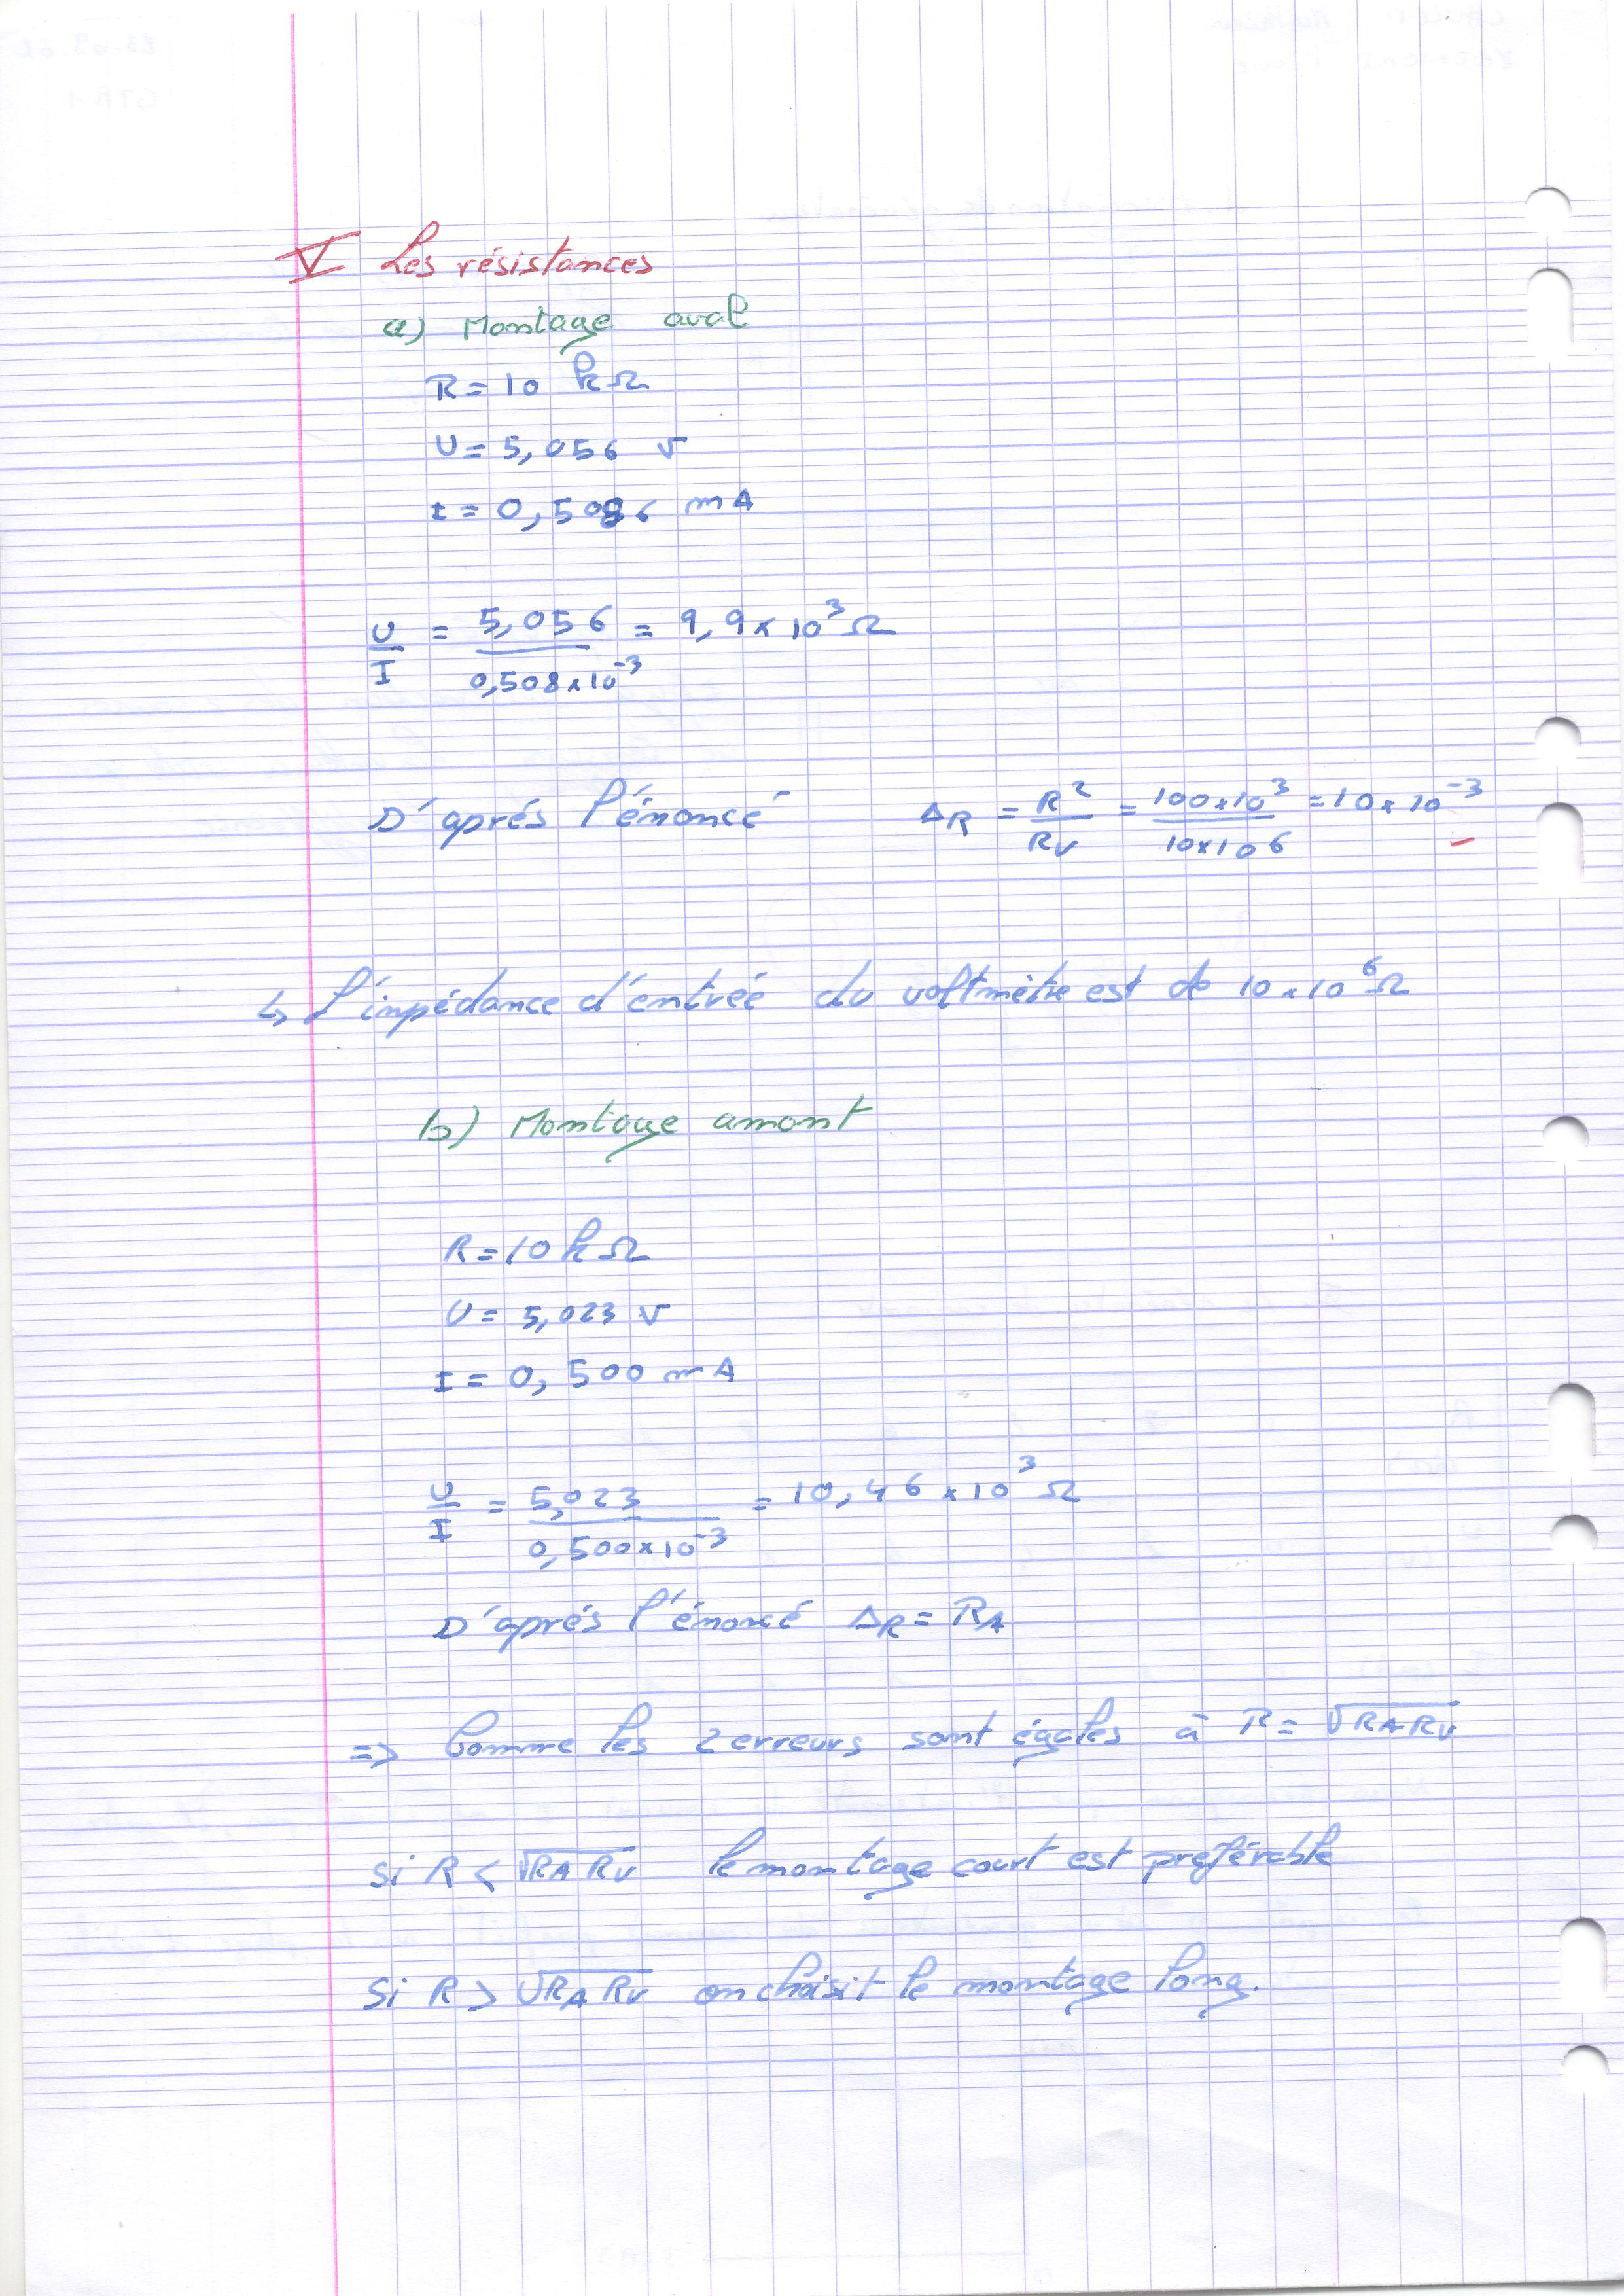 V Les résistances
a) Montage aval
R = 10 kΩ
U = 5,056 V
I = 0,5086 mA
U/I = 5,056 / 0,508×10⁻³ = 9,9×10³ Ω
D'aprés l'énoncé ΔR = R²/Rv = 100×10³ / 10×10⁶ = 10×10⁻³
↳ L'inpédance d'entrée du voltmètre est de 10×10⁶ Ω
b) Montage amont
R = 10 kΩ
U = 5,023 V
I = 0,500 mA
U/I = 5,023 / 0,500×10⁻³ = 10,46×10³ Ω
D'aprés l'énoncé ΔR = RA
=> Comme les 2 erreurs sont égales à R = √RA Rv
Si R < √RA Rv le montage court est préférable
Si R > √RA Rv on choisit le montage long.